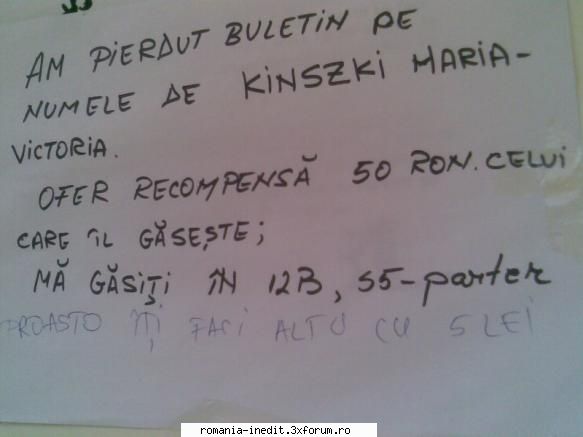 AM PIERDUT BULETIN PE
NUMELE DE KINSZKI MARIA-
VICTORIA.
OFER RECOMPENSĂ 50 RON. CELUI
CARE ÎL GĂSEȘTE;
MĂ GĂSIȚI ÎN 12B, S5-parter
PROASTO ÎȚI FACI ALTU CU 5 LEI
romania-inedit.3xforum.ro